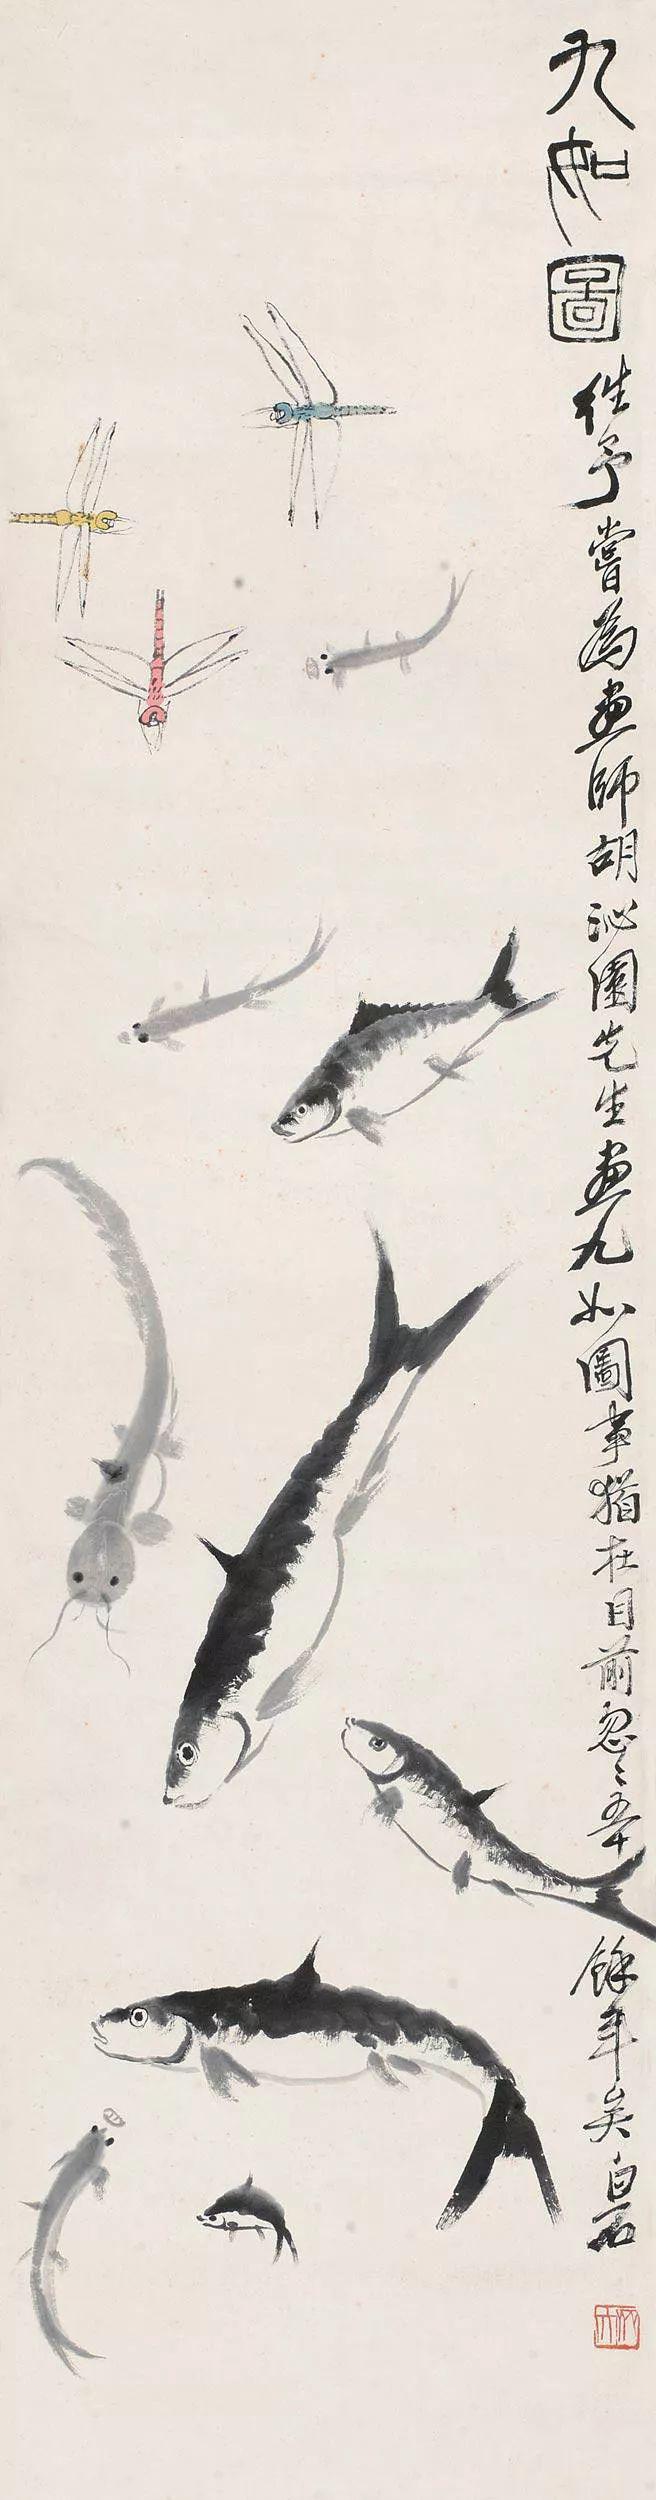 九如圖
往予嘗為畫師胡沁園先生畫九如圖事猶在目前忽忽五十餘年矣白石